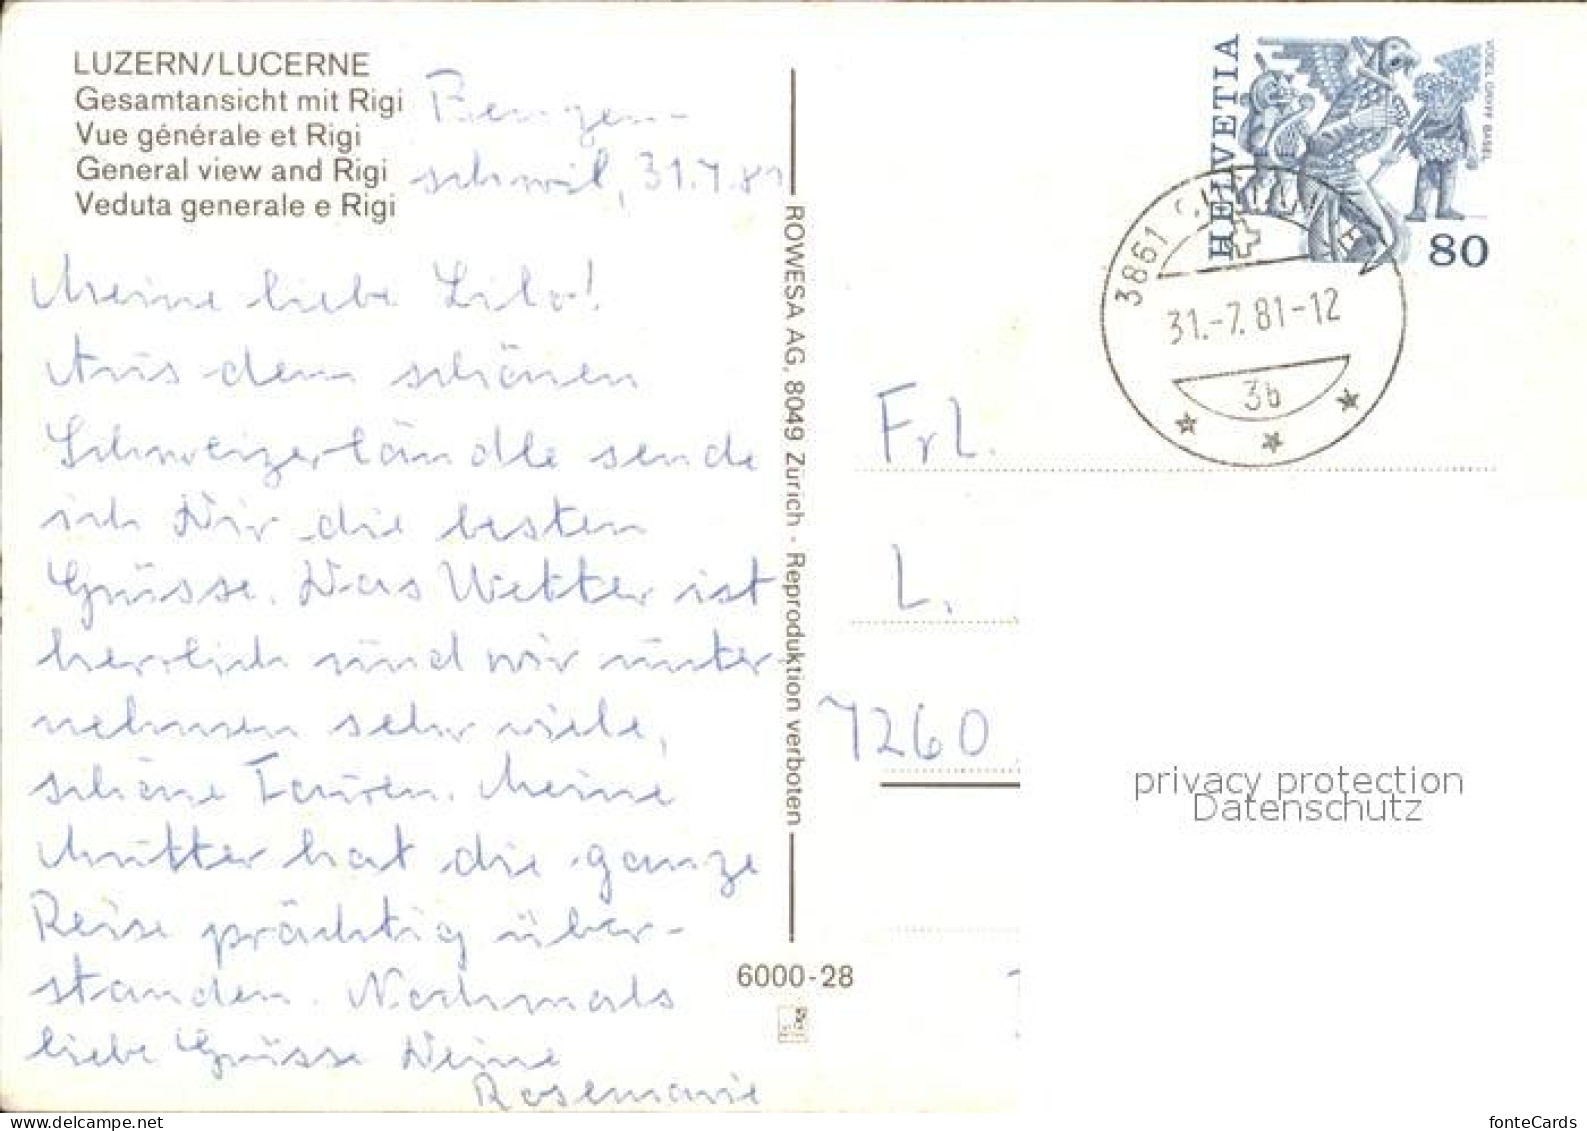 LUZERN/LUCERNE
Gesamtansicht mit Rigi
Vue générale et Rigi
General view and Rigi
Veduta generale e Rigi
schwil, 31.7.81
Meine liebe Lilo!
Aus dem schönen
Schweizerländle sende
ich Dir die besten
Grüsse. Das Wetter ist
herrlich und wir unter-
nehmen sehr viele,
schöne Touren. Meine
Mutter hat die ganze
Reise prächtig über-
standen. Nochmals
liebe Grüsse Deine
Rosemarie
ROWESA AG, 8049 Zürich - Reproduktion verboten
6000-28
HELVETIA
VOGEL GRYFF BASEL
80
3861
31.-7.81-12
3b
Frl.
L.
7260
privacy protection
Datenschutz
fonteCards